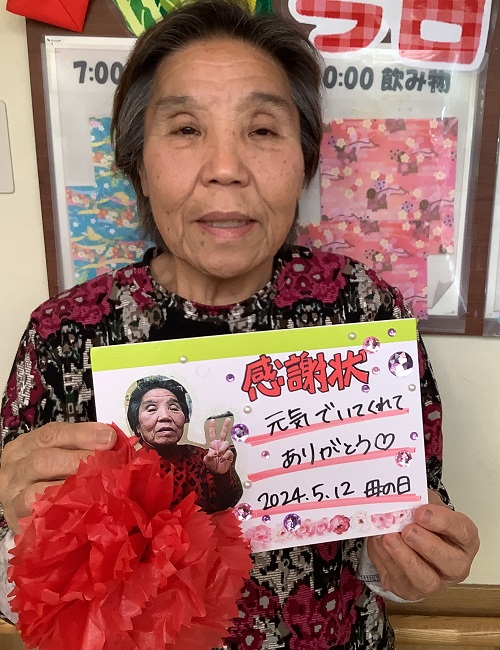 7:00
0:00 飲み物
感謝状
元気でいてくれて
ありがとう♡
2024.5.12 母の日